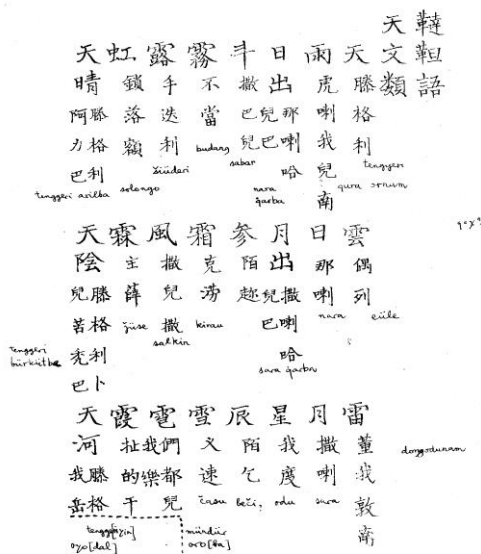 韃靼語
天文類
天 滕格利 tengyeri
雨 虎喇我兒南 qura ornum
日出 那喇哈兒巴 nara garba
斗 撒巴兒 sabar
霧 不當 budang
露 手迭利 žiüderi
虹 鎖落額 solongo
天晴 滕格利阿力巴 tenggeri arilba
雲 偶列 eüle
日 那喇 nara
月出 撒喇哈兒巴 sara garba
參 陌趂
霜 克澇 kirau
風 撒兒撒 salkin
霖 主薛 žüse
天陰 滕格利卜兒苦禿巴 tenggeri bürkütbe
雷 董我敦南 dongodunam
月 撒喇 sara
星 我度 odu
辰 陌乞 beči
雪 义速 času
雹 們都兒我樂 mündür oro[ba]
霞 扯的干
天河 滕格我岳 oyo[dal]